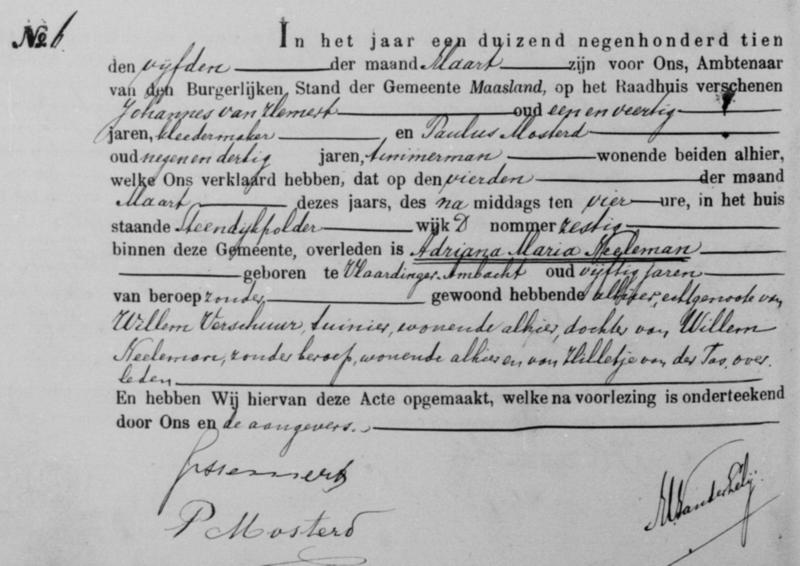 No. 6.
In het jaar een duizend negenhonderd tien
den vijfden der maand Maart zijn voor Ons, Ambtenaar
van den Burgerlijken Stand der Gemeente Maasland, op het Raadhuis verschenen
Johannes van Hemert oud een en veertig
jaren, kleedermaker en Paulus Mosterd
oud negen en dertig jaren, timmerman wonende beiden alhier,
welke Ons verklaard hebben, dat op den vierden der maand
Maart dezes jaars, des na middags ten vier ure, in het huis
staande Steendijkpolder wijk D nommer zestig
binnen deze Gemeente, overleden is Adriana Maria Neeleman
geboren te Vlaardinger Ambacht oud vijftig jaren
van beroep zonder, gewoond hebbende alhier, echtgenoote van
Willem Verschuur, tuinier, wonende alhier, dochter van Willem
Neeleman, zonder beroep, wonende alhier en van Hilletje van der Tas, over
leden
En hebben Wij hiervan deze Acte opgemaakt, welke na voorlezing is onderteekend
door Ons en de aangevers.
P Mosterd